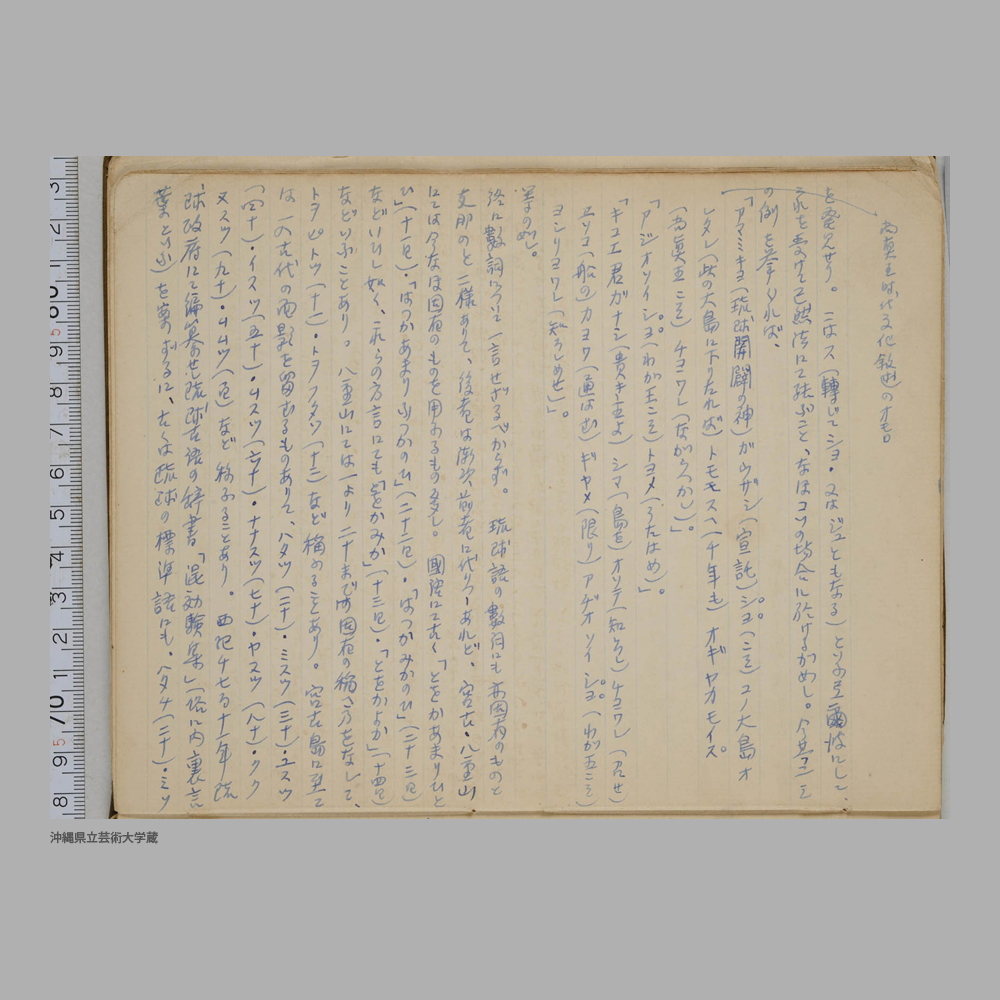 尚真王時代文化敍述のオモロ
を発見せり。こはス(轉じてシヨ・又はジユともなる)といふ天爾波にして、
これを受けて已然法にて結ぶこと、なほコソの場合に於けるがめし。今其二三
の例を挙ぐれば、
「アマミキヨ(琉球開闢の神)がウザシ(宣託)シヨ(こそ)コノ大島オ
レタレ(此の大島に下りたれば)トモモスヘ(千年も)オギヤカモイス
(尚真王こそ)チヨワレ(ながらへかし)」。
「アジオソイシヨ(わが王こそ)トヨメ(うたはめ)」。
「キコエ君ガナシ(貴き王よ)シマ(島を)オソテ(知らし)チヨワレ(召せ)
エソコ(船の)カヨワ(通はむ)ギヤメ(限り)アヂオソイシヨ(わが王こそ)
ヨシリヨワレ(知ろしめせ)」。
等の如し。
終に數詞について一言せざるべからず。琉球語の數詞にも亦固有のものと
支那のと二様ありて、後者は漸次前者に代りつゝあれど、宮古・八重山
にては今なほ固有のものを用ゐるもの多し。國語にて古く「とをかあまりひと
ひ」(十一日)・「はつかあまりふつかのひ」(二十二日)・「はつかみかのひ」(二十三日)
などいひし如く、これらの方言にても「とをかみか」(十三日)・「とをかよか」(十四日)
などいふことあり。八重山にては一より二十まで固有の稱へ方をなして、
トヲピトツ(十一)・トヲフタツ(十二)など稱ふることあり。宮古島に至て
は一入古代の面影を留むるものありて、ハタツ(二十)・ミスツ(三十)・ユスツ
(四十)・イスツ(五十)・ムスツ(六十)・ナナスツ(七十)・ヤスツ(八十)・クク
ヌスツ(九十)・ムムツ(百)など稱ふることあり。西紀千七百十一年琉
球政府にて編纂せし琉球古語の辞書「混効験集」(俗に内裏言
葉といふ)を案ずるに、古くは琉球の標準語にも、ハタチ(二十)・ミソ
沖縄県立芸術大学蔵